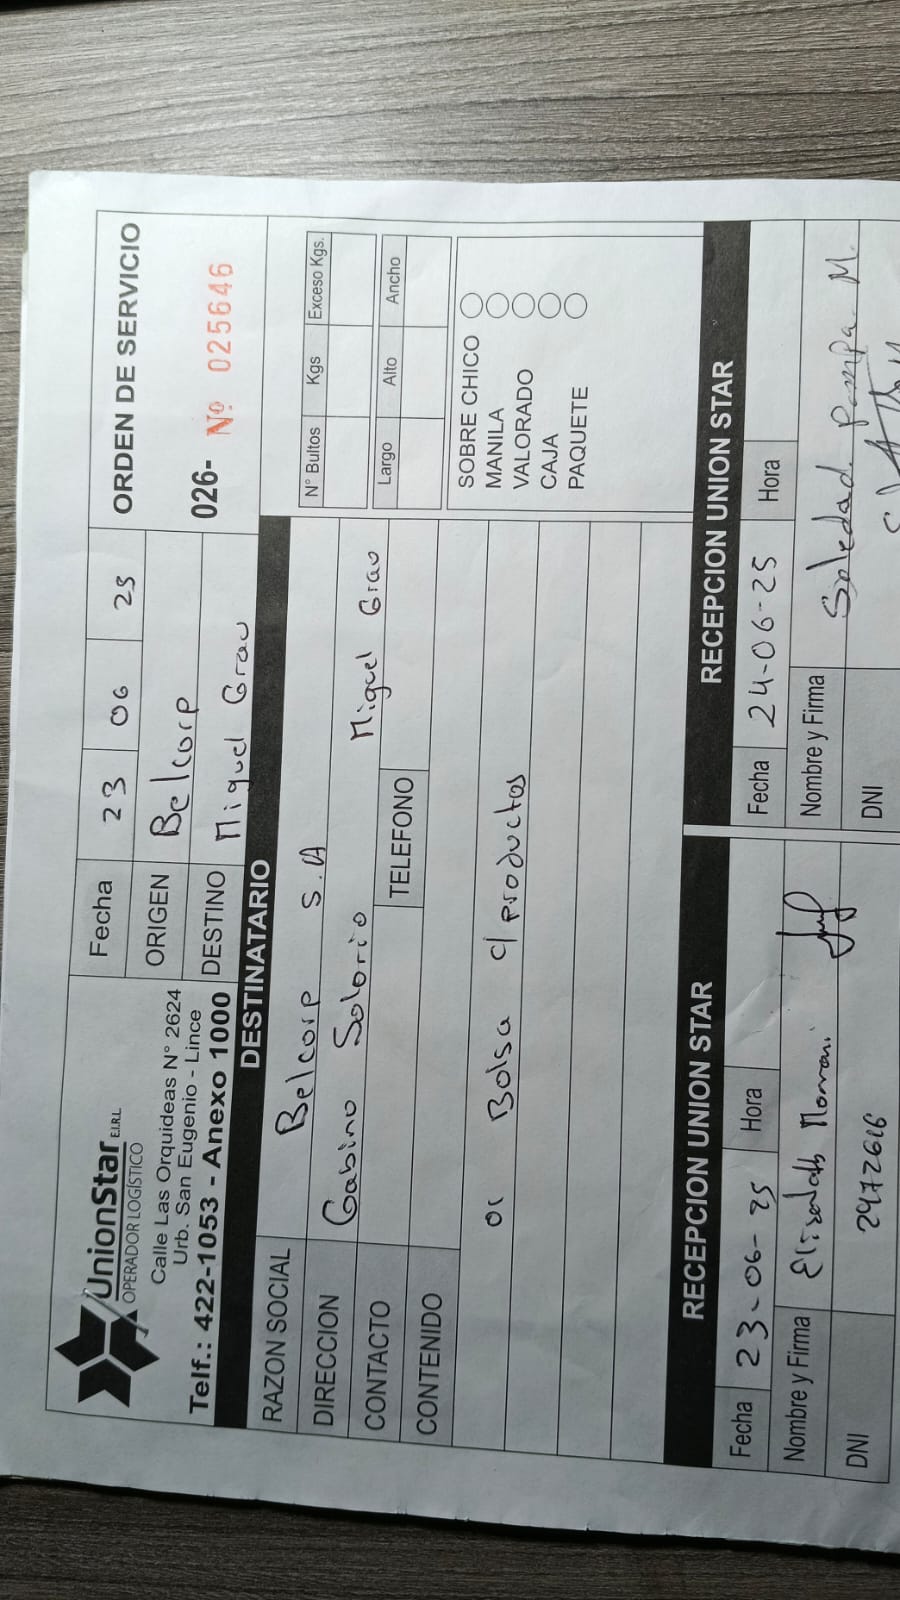 UnionStar E.I.R.L
OPERADOR LOGÍSTICO
Calle Las Orquideas N° 2624
Urb. San Eugenio - Lince
Telf.: 422-1053 - Anexo 1000
Fecha 23 06 25
ORIGEN Belcorp
DESTINO Miguel Grau
ORDEN DE SERVICIO
026- Nº 025646
DESTINATARIO
RAZON SOCIAL Belcorp S.A
DIRECCION Gabino Solorio Miguel Grau
CONTACTO TELEFONO
CONTENIDO
01 Bolsa c/ productos
N° Bultos Kgs Exceso Kgs.
Largo Alto Ancho
SOBRE CHICO
MANILA
VALORADO
CAJA
PAQUETE
RECEPCION UNION STAR
Fecha 23-06-25 Hora
Nombre y Firma Mamani
DNI
RECEPCION UNION STAR
Fecha 24-06-25 Hora
Nombre y Firma Soledad Pampa M.
DNI